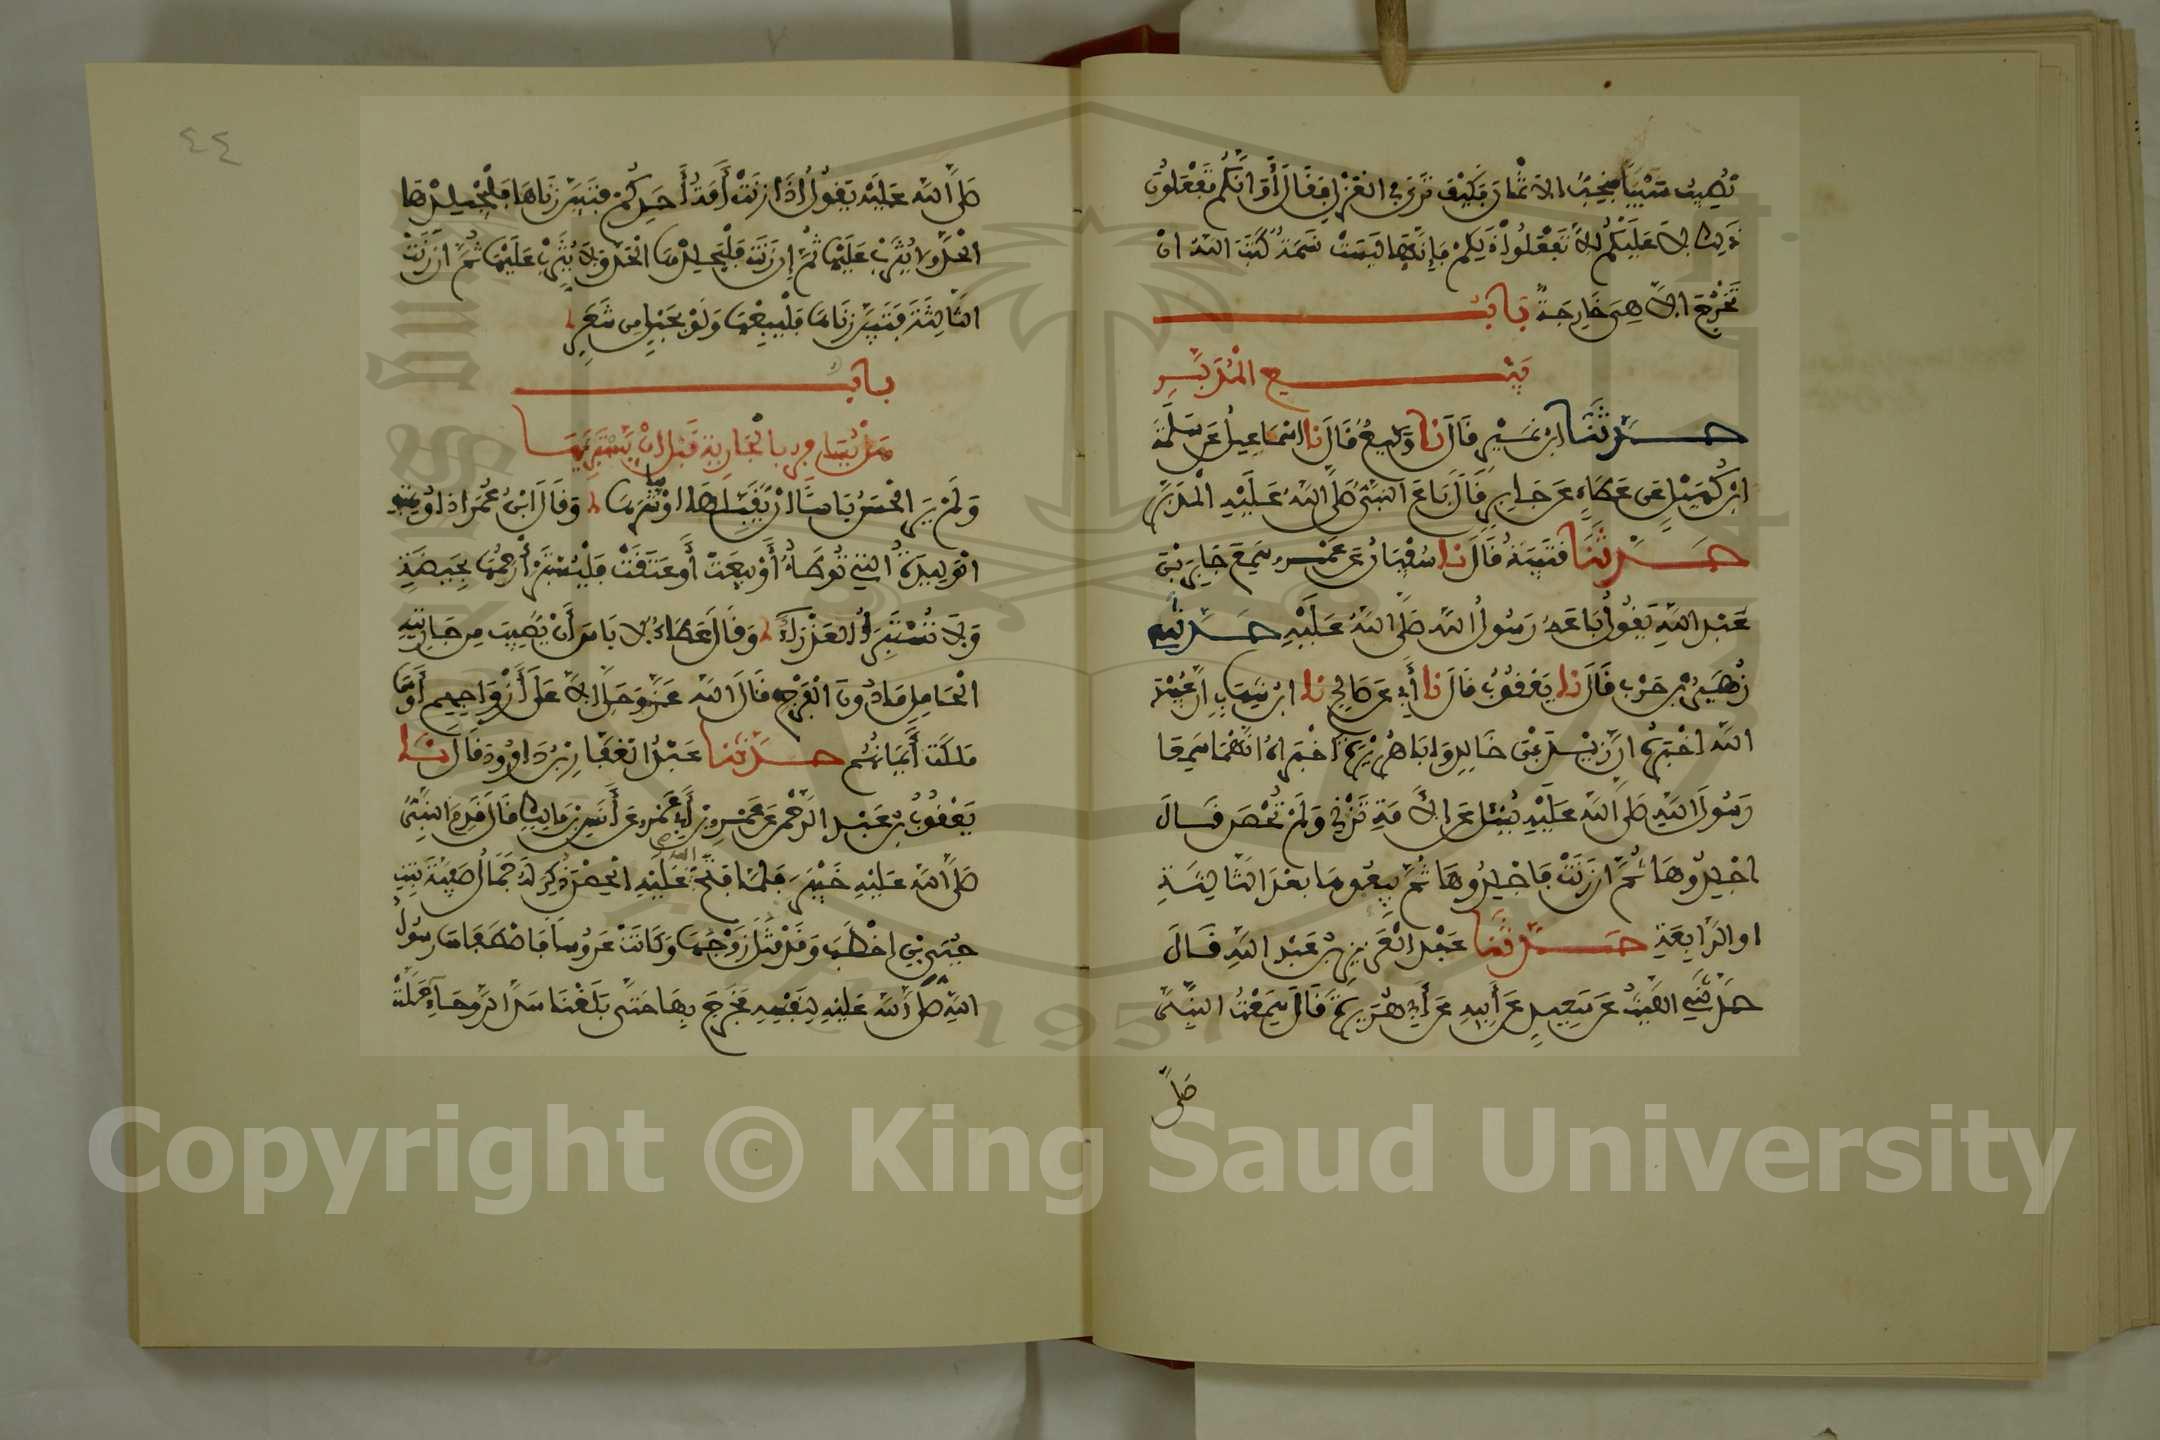 نُصِيبُ سَبْيًا فَنُحِبُّ الأَثْمَانَ فَكَيْفَ تَرَى فِي الْعَزْلِ فَقَالَ أَوَإِنَّكُمْ تَفْعَلُونَ
ذَلِكَ لاَ عَلَيْكُمْ أَلاَّ تَفْعَلُوا ذَلِكُمْ فَإِنَّهَا لَيْسَتْ نَسَمَةٌ كَتَبَ اللَّهُ أَنْ
تَخْرُجَ إِلاَّ هِيَ خَارِجَةٌ بَابُ
بَيْعِ الْمُدَبَّرِ
حَدَّثَنَا ابْنُ نُمَيْرٍ قَالَ نا وَكِيعٌ قَالَ نا إِسْمَاعِيلُ عَنْ سَلَمَةَ
ابْنِ كُهَيْلٍ عَنْ عَطَاءٍ عَنْ جَابِرٍ قَالَ بَاعَ النَّبِيُّ صَلَّى اللَّهُ عَلَيْهِ الْمُدَبَّرَ
حَدَّثَنَا قُتَيْبَةُ قَالَ نا سُفْيَانُ عَنْ عَمْرٍو سَمِعَ جَابِرَ بْنَ
عَبْدِ اللَّهِ يَقُولُ بَاعَهُ رَسُولُ اللَّهِ صَلَّى اللَّهُ عَلَيْهِ حَدَّثَنِي
زُهَيْرُ بْنُ حَرْبٍ قَالَ نا يَعْقُوبُ قَالَ نا أَبِي عَنْ صَالِحٍ نا ابْنُ شِهَابٍ أَنَّ عُبَيْدَ
اللَّهِ أَخْبَرَهُ أَنَّ زَيْدَ بْنَ خَالِدٍ وَأَبَا هُرَيْرَةَ أَخْبَرَاهُ أَنَّهُمَا سَمِعَا
رَسُولَ اللَّهِ صَلَّى اللَّهُ عَلَيْهِ يُسْئَلُ عَنِ الأَمَةِ تَزْنِي وَلَمْ تُحْصَنْ قَالَ
اجْلِدُوهَا ثُمَّ إِنْ زَنَتْ فَاجْلِدُوهَا ثُمَّ بِيعُوهَا بَعْدَ الثَّالِثَةِ
أَوِ الرَّابِعَةِ حَدَّثَنَا عَبْدُ الْعَزِيزِ بْنُ عَبْدِ اللَّهِ قَالَ
حَدَّثَنِي اللَّيْثُ عَنْ سَعِيدٍ عَنْ أَبِيهِ عَنْ أَبِي هُرَيْرَةَ قَالَ سَمِعْتُ النَّبِيَّ
صَلَّى
٤٤
صَلَّى اللَّهُ عَلَيْهِ يَقُولُ إِذَا زَنَتْ أَمَةُ أَحَدِكُمْ فَتَبَيَّنَ زِنَاهَا فَلْيَجْلِدْهَا
الْحَدَّ وَلاَ يُثَرِّبْ عَلَيْهَا ثُمَّ إِنْ زَنَتْ فَلْيَجْلِدْهَا الْحَدَّ وَلاَ يُثَرِّبْ عَلَيْهَا ثُمَّ إِنْ زَنَتِ
الثَّالِثَةَ فَتَبَيَّنَ زِنَاهَا فَلْيَبِعْهَا وَلَوْ بِحَبْلٍ مِنْ شَعَرٍ
بَابُ
هَلْ يُسَافِرُ بِالْجَارِيَةِ قَبْلَ أَنْ يَسْتَبْرِيَهَا
وَلَمْ يَرَ الْحَسَنُ بَاسًا أَنْ يُقَبِّلَهَا أَوْ يُبَاشِرَهَا وَقَالَ ابْنُ عُمَرَ إِذَا وُهِبَتِ
الْوَلِيدَةُ الَّتِي تُوطَأُ أَوْ بِيعَتْ أَوْ عَتَقَتْ فَلْيُسْتَبْرَأْ رَحِمُهَا بِحَيْضَةٍ
وَلاَ تُسْتَبْرَأُ الْعَذْرَاءُ وَقَالَ عَطَاءٌ لاَ بَاسَ أَنْ يُصِيبَ مِنْ جَارِيَتِهِ
الْحَامِلِ مَا دُونَ الْفَرْجِ قَالَ اللَّهُ عَزَّ وَجَلَّ إِلاَّ عَلَى أَزْوَاجِهِمْ أَوْ مَا
مَلَكَتْ أَيْمَانُهُمْ حَدَّثَنَا عَبْدُ الْغَفَّارِ بْنُ دَاوُودَ قَالَ نا
يَعْقُوبُ بْنُ عَبْدِ الرَّحْمَنِ عَنْ عَمْرِو بْنِ أَبِي عَمْرٍو عَنْ أَنَسِ بْنِ مَالِكٍ قَالَ قَدِمَ النَّبِيُّ
صَلَّى اللَّهُ عَلَيْهِ خَيْبَرَ فَلَمَّا فَتَحَ اللَّهُ عَلَيْهِ الْحِصْنَ ذُكِرَ لَهُ جَمَالُ صَفِيَّةَ بِنْتِ
حُيَيِّ بْنِ أَخْطَبَ وَقَدْ قُتِلَ زَوْجُهَا وَكَانَتْ عَرُوسًا فَاصْطَفَاهَا رَسُولُ
اللَّهِ صَلَّى اللَّهُ عَلَيْهِ لِنَفْسِهِ فَخَرَجَ بِهَا حَتَّى بَلَغْنَا سَدَّ الرَّوْحَاءِ حَلَّتْ
Copyright © King Saud University
1957